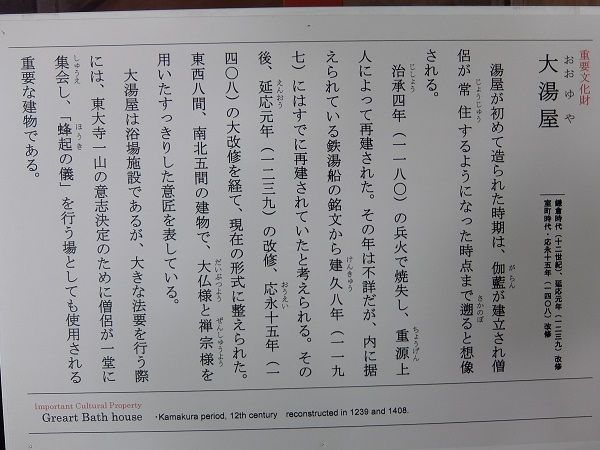 重要文化財
大湯屋
おおゆや
鎌倉時代（十二世紀）、延応元年（一二三九）改修
室町時代・応永十五年（一四〇八）改修
湯屋が初めて造られた時期は、伽藍が建立され僧
侶が常住するようになった時点まで遡ると想像
される。
治承四年（一一八〇）の兵火で焼失し、重源上
人によって再建された。その年は不詳だが、内に据
えられている鉄湯船の銘文から建久八年（一一九
七）にはすでに再建されていたと考えられる。その
後、延応元年（一二三九）の改修、応永十五年（一
四〇八）の大改修を経て、現在の形式に整えられた。
東西八間、南北五間の建物で、大仏様と禅宗様を
用いたすっきりした意匠を表している。
大湯屋は浴場施設であるが、大きな法要を行う際
には、東大寺一山の意志決定のために僧侶が一堂に
集会し、「蜂起の儀」を行う場としても使用される
重要な建物である。
Important Cultural Property
Greart Bath house ・Kamakura period, 12th century reconstructed in 1239 and 1408.